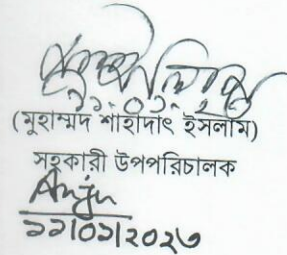 (মুহাম্মদ শাহাদাৎ ইসলাম)
সহকারী উপপরিচালক
Anju
১১/০১/২০২৩